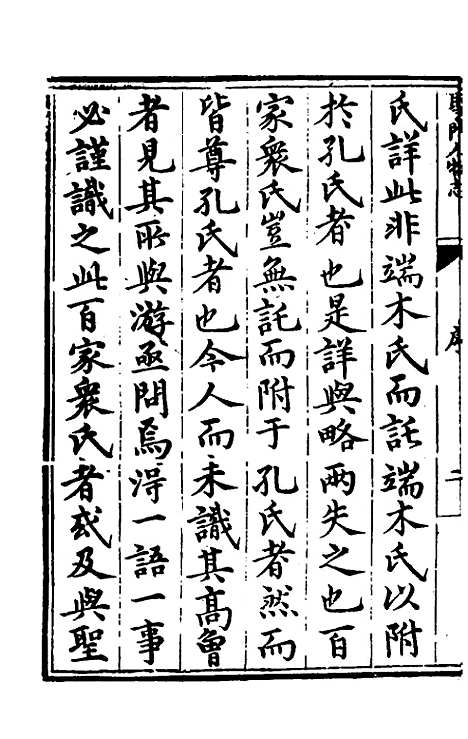 聖門人物志
序
二
氏詳此非端木氏而託端木氏以附
於孔氏者也是詳與略兩失之也百
家衆氏豈無託而附于孔氏者然而
皆尊孔氏者也今人而未識其高曾
者見其所與游亟問焉淂一語一事
必謹識之此百家衆氏者或及與聖